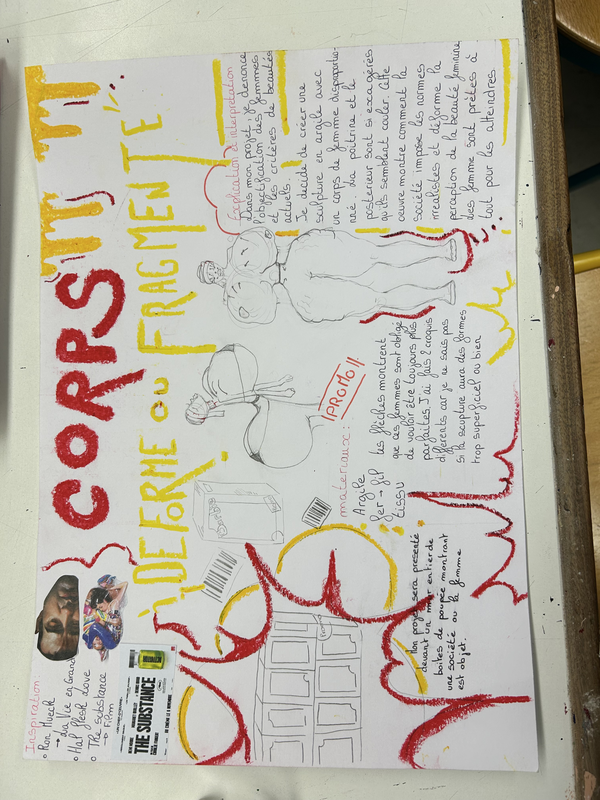 CORPS
DEFORME OU FRAGMENTÉ
Inspiration
• Ron Mueck
→ La Vie en Grand
• Hal flesh love
• The substance
→ Film
THE SUBSTANCE
PROMO!!
materiaux:
Argile
fer → fil
tissu
Les flèches montrent
que ces femmes sont obligé
de vouloir être toujours plus
parfaites. J'ai fais 2 croquis
différents car je ne sais pas
si la sculpture aura des formes
trop superficiel ou bien
Mon projet sera presenté
devant un mur entier de
boites de poupée montrant
une société ou la femme
est objet.
Explication & interprétation
Dans mon projet, je denonce
l'objectification des femmes
et les critères de beautés
actuels.
Je decide de créer une
sculpture en argile avec
un corps de femme disproportio-
nné. La poitrine et le
posterieur sont si exagérés
qu'ils semblent couler. Cette
oeuvre montre comment la
société impose les normes
irrealistes et déforme la
perception de la beauté féminine
Les femme sont prêtes à
tout pour les atteindres